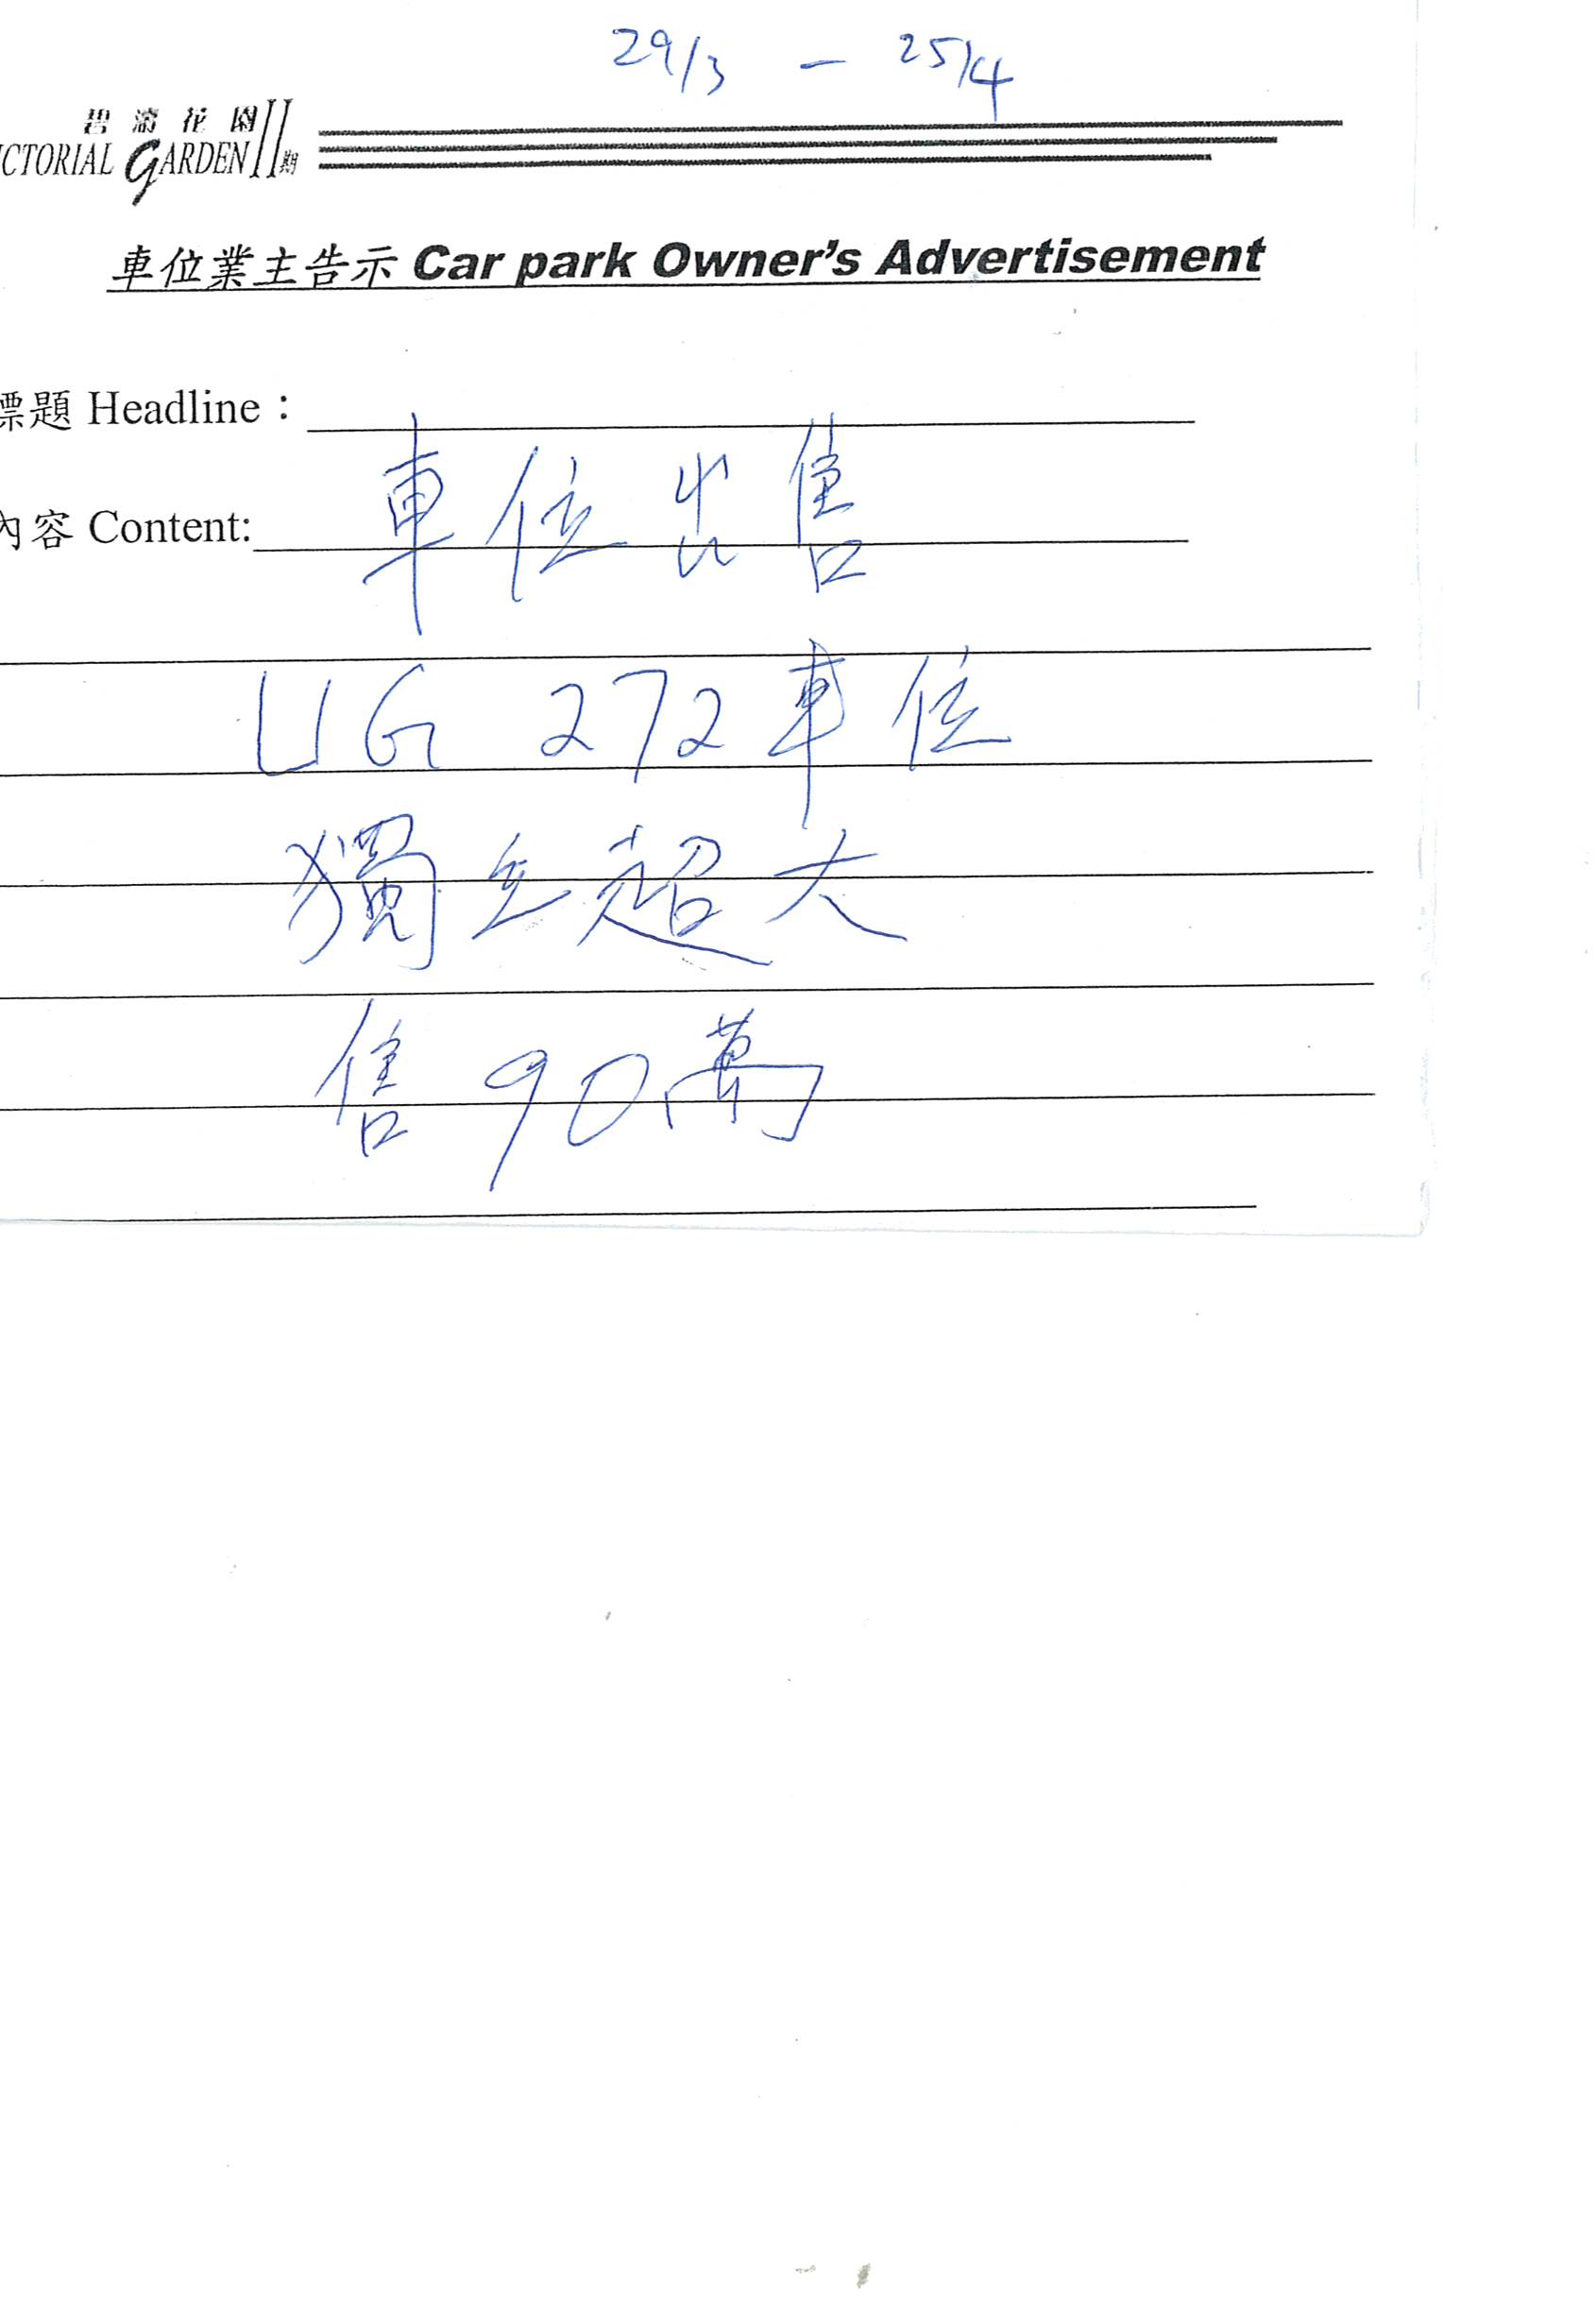 29/3 - 25/4
碧濤花園II期
ICTORIAL GARDEN
車位業主告示 Car park Owner's Advertisement
標題 Headline：
內容 Content:
車位出售
UG 272車位
獨立超大
售90萬